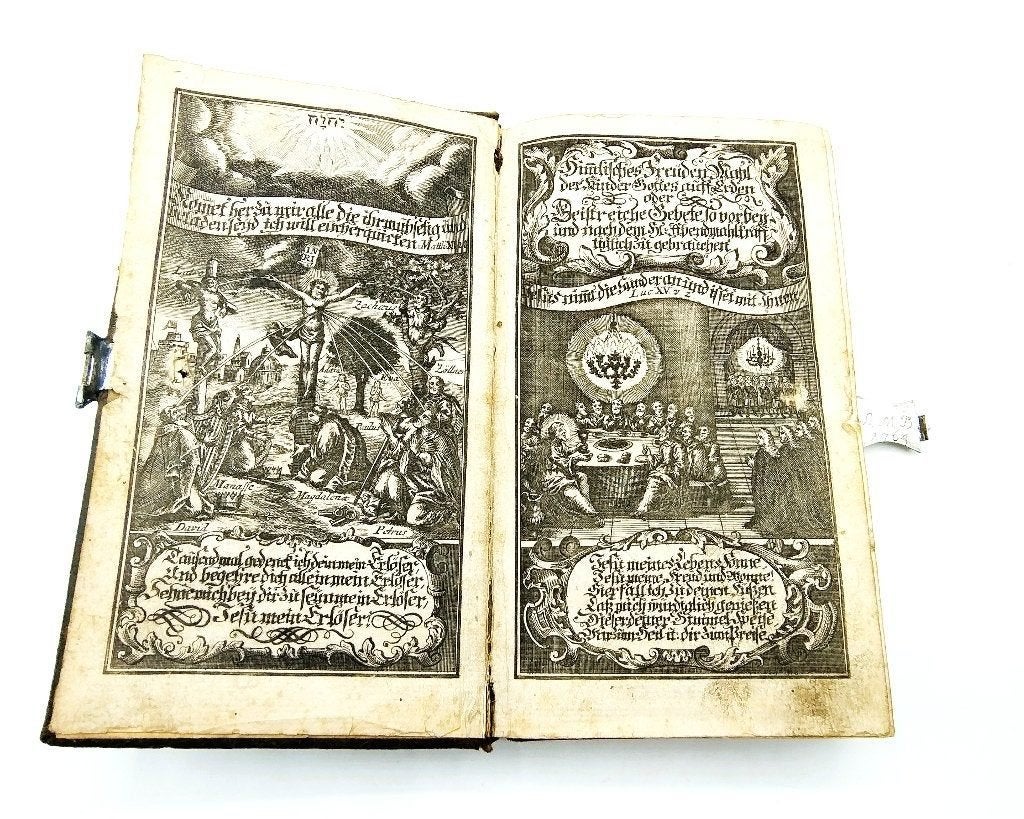 יהוה
Komet her zu mir alle die ihr mühselig und
beladen seyd ich will euch erquicken Matth. XI
IN
RI
Zachæus
Zöllner
Paulus
Manasse
Magdalena
David
Petrus
Tausendmal gedenck ich dein mein Erlöser,
Und begehre dich allein mein Erlöser,
Sehne mich bey dir zu sein mein Erlöser,
Jesu mein Erlöser,
Himlisches Freuden Mahl
der Kinder Gottes auff Erden
oder
Geistreiche Gebete so vor bey
und nach dem H. Abendmahl kräff
tiglich zu gebrauchen
Jesus nimt die Sünder an und isset mit Ihnen
Luc XV v 2
Jesu meines Lebens Sonne
Jesu meine Freud und Wonne
Hier fall ich zu deinen Füßen
Laß mich würdiglich genießen
Dieser deiner Himmels Speise
Mir zum Heil u. dir zum Preise